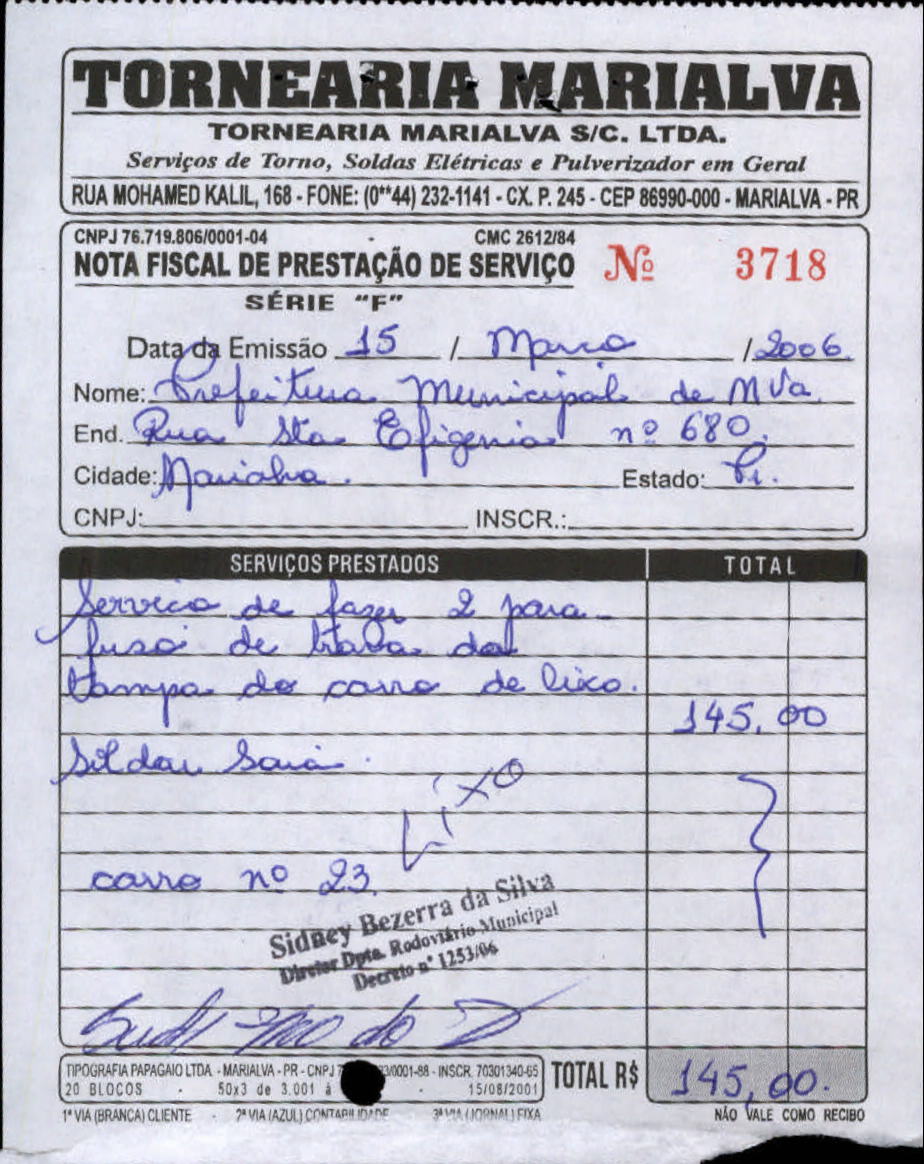 TORNEARIA MARIALVA
TORNEARIA MARIALVA S/C. LTDA.
Serviços de Torno, Soldas Elétricas e Pulverizador em Geral
RUA MOHAMED KALIL, 168 - FONE: (0**44) 232-1141 - CX. P. 245 - CEP 86990-000 - MARIALVA - PR
CNPJ 76.719.806/0001-04 CMC 2612/84
NOTA FISCAL DE PRESTAÇÃO DE SERVIÇO Nº 3718
SÉRIE "F"
Data da Emissão 15 / Marco / 2006
Nome: Prefeitura Municipal de MVa
End. Rua Sta Efigenia nº 680.
Cidade: Marialva. Estado: Pr.
CNPJ: INSCR.:
SERVIÇOS PRESTADOS TOTAL
Servico de fazer 2 para
fuso de trava da
tampa do carro de lixo.
145,00
Soldar Saia.
Lixo
carro nº 23.
Sidney Bezerra da Silva
Diretor Dpto. Rodoviário Municipal
Decreto nº 1253/06
TIPOGRAFIA PAPAGAIO LTDA. - MARIALVA - PR - CNPJ 7 /0001-88 - INSCR. 70301340-65
20 BLOCOS - 50x3 de 3.001 à - 15/08/2001
TOTAL R$ 145,00.
1ª VIA (BRANCA) CLIENTE - 2ª VIA (AZUL) CONTABILIDADE 3ª VIA (JORNAL) FIXA NÃO VALE COMO RECIBO